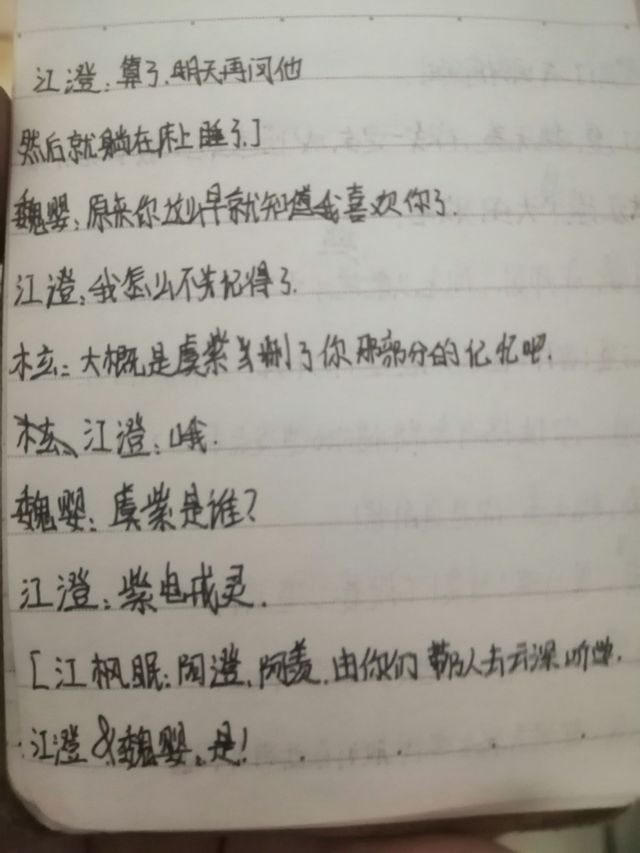 江澄:算了.明天再问他
然后就躺在床上睡了.]
魏婴:原来你这么早就知道我喜欢你了.
江澄:我怎么不先记得了.
桩:大概是虞紫当删了你那部分的记忆吧.
江澄:哦.
魏婴:虞紫是谁?
江澄:紫电戒灵.
[江枫眠:阿澄.阿羡.由你们带队人去云深听学.
江澄&魏婴:是!